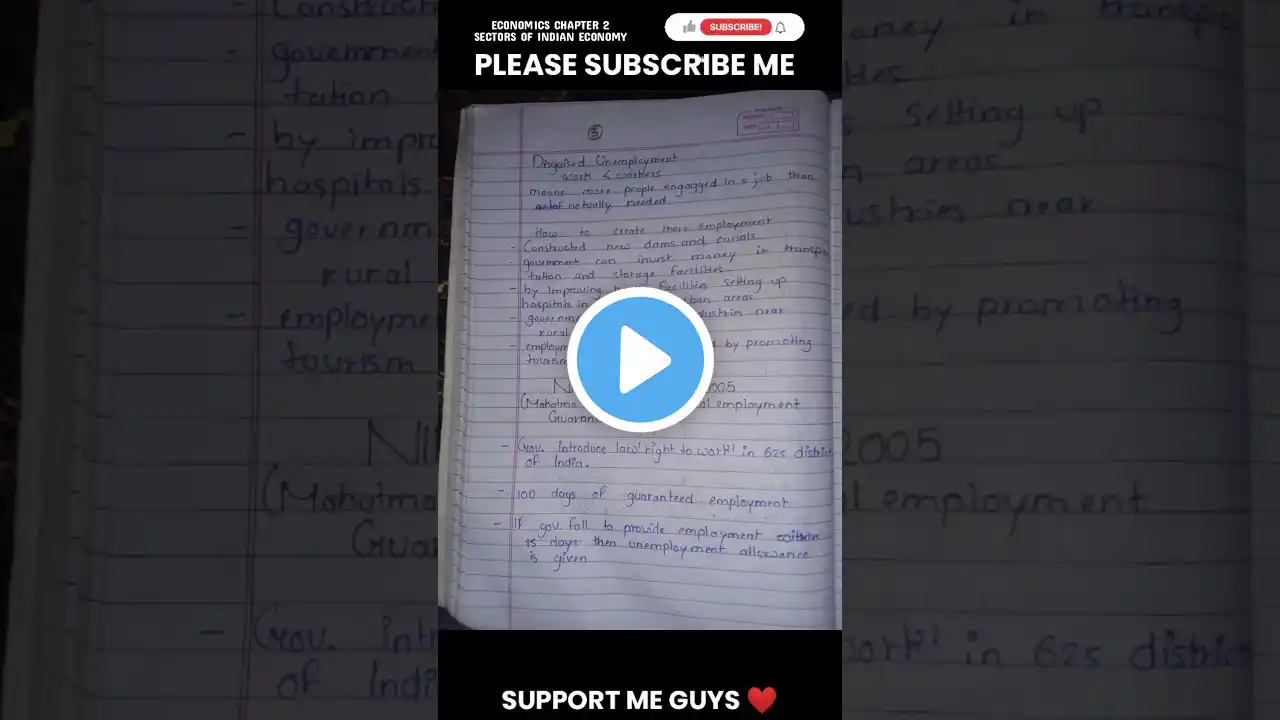 ECONOMICS CHAPTER 2
SECTORS OF INDIAN ECONOMY
SUBSCRIBE!
PLEASE SUBSCRIBE ME
5
Disguised Unemployment
work < workers
means more people engagged in a job than
actually needed
How to create more employment
- Constructed new dams and canals
- government can invest money in transpo
tation and storage facilities
- by improving facilities setting up
hospitals in areas
- governme near
rural
- employme d by promoting
tourism
N 005
(Mahatma al employment
Guaran
- Gov. introduce law 'right to work' in 625 district
of India.
- 100 days of guaranteed employment
- If gov. fall to provide employment within
15 days then unemployment allowance
is given
SUPPORT ME GUYS